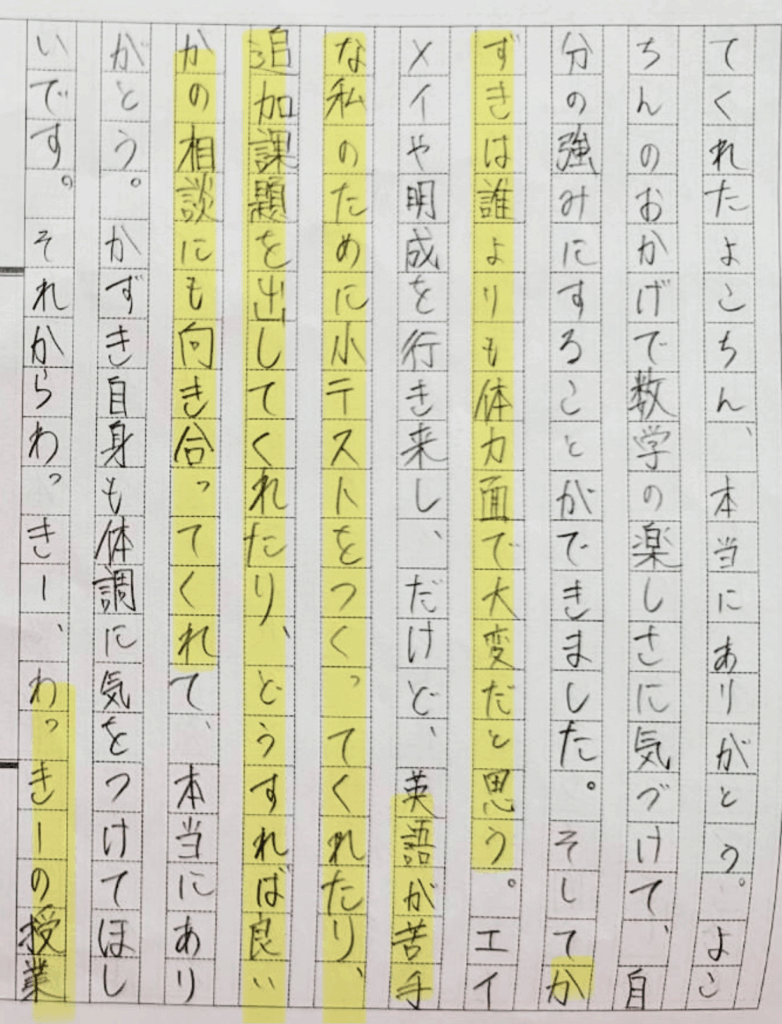 てくれたよこちん、本当にありがとう。よこ
ちんのおかげで数学の楽しさに気づけて、自
分の強みにすることができました。そしてか
ずきは誰よりも体力面で大変だと思う。エイ
メイや明成を行き来し、だけど、英語が苦手
な私のために小テストをつくってくれたり、
追加課題を出してくれたり、どうすれば良い
かの相談にも向き合ってくれて、本当にあり
がとう。かずき自身も体調に気をつけてほし
いです。それからわっきー、わっきーの授業